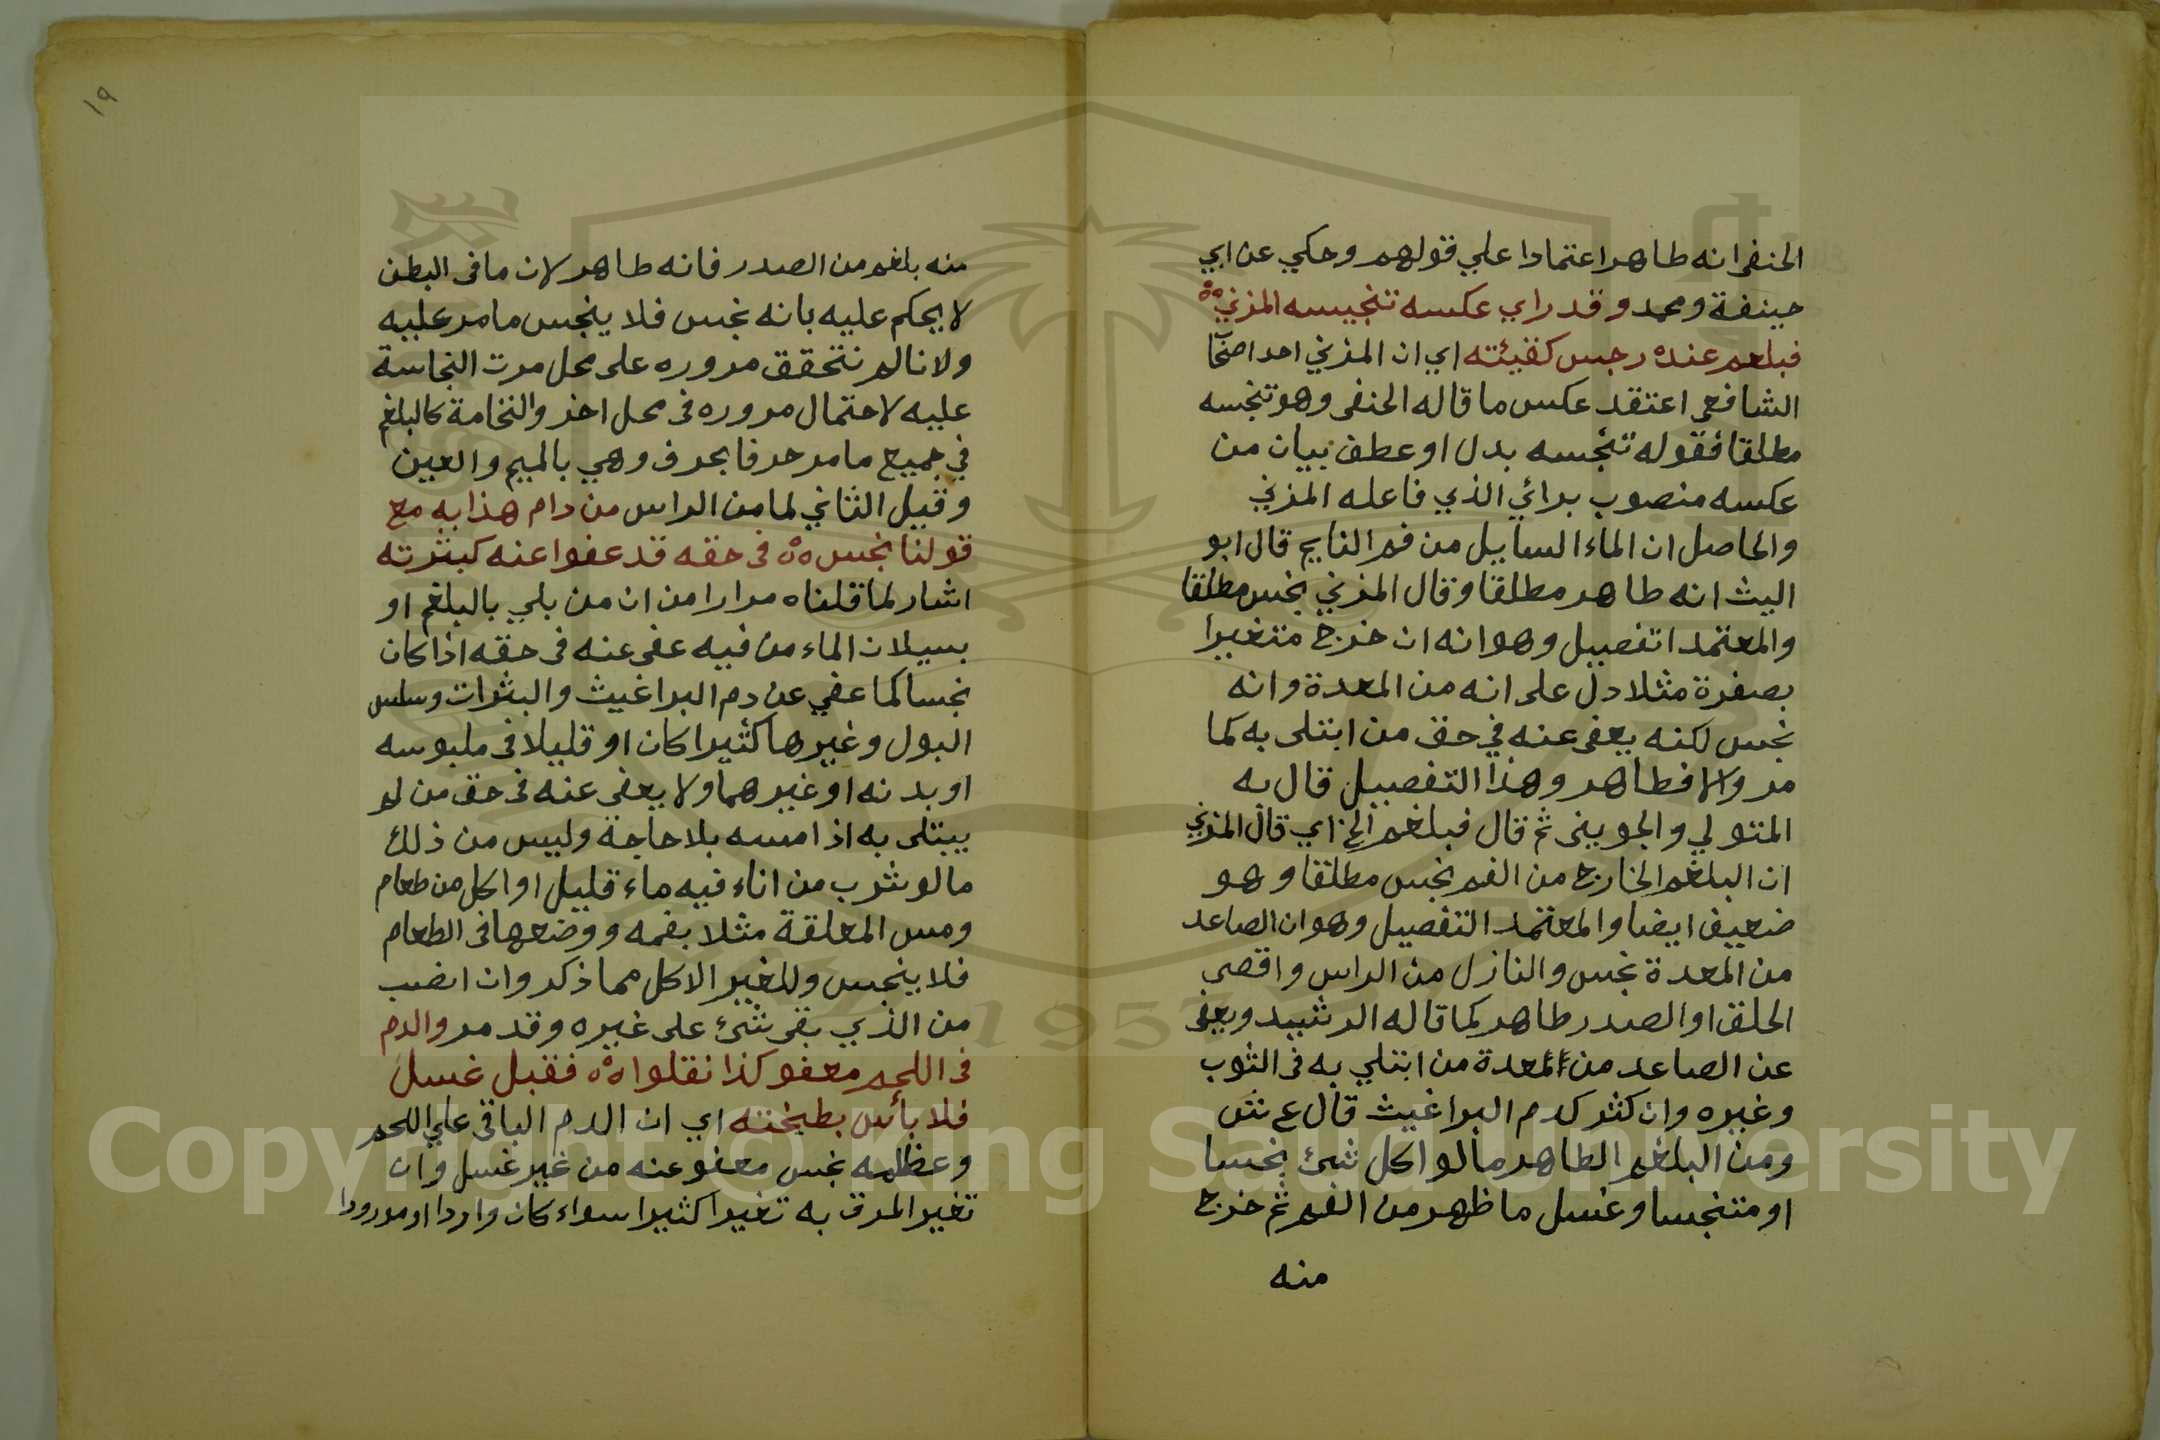 الحنفى انه طاهر اعتمادا علي قولهم وحكي عن ابي
حينفة ومحمد وقد راي عكسه تنجيسه المزني ه
فبلغم عنده رجس كقيئته اي ان المزني احد اصحا
الشافعي اعتقد عكس ما قاله الحنفى وهو تنجسه
مطلقا فقوله تنجسه بدل او عطف بيان من
عكسه منصوب برائي الذي فاعله المزني
والحاصل ان الماء السايل من فم النايم قال ابو
اليث انه طاهر مطلقا وقال المزني نجس مطلقا
والمعتمد اتفصيل وهو انه ان خرج متغيرا
بصفرة مثلا دل على انه من المعدة وانه
نجس لكنه يعفى عنه في حق من ابتلى به كما
مر والا فطاهر وهذا التفصيل قال به
المتولي والجوينى ثم قال فبلغم الخ اي قال المزني
ان البلغم الخارج من الفم نجس مطلقا وهو
ضعيف ايضا والمعتمد التفصيل وهو ان الصاعد
من المعدة نجس والنازل من الراس واقصى
الحلق او الصدر طاهر كما قاله الرشيد ويعفى
عن الصاعد من المعدة من ابتلي به فى الثوب
وغيره وان كثر كدم البراغيث قال ع ش
ومن البلغم الطاهر مالو اكل شئ نجسا
او متنجسا وغسل ما ظهر من الفم ثم خرج
منه
١٩
منه بلغم من الصدر فانه طاهر لان ما فى البطن
لا يحكم عليه بانه نجس فلا ينجس ما مر عليه
ولانا لم نتحقق مروره على محل مرت النجاسة
عليه لاحتمال مروره فى محل اخر والنخامة كالبلغم
في جميع ما مر حرفا بحرف وهي بالميم والعين
وقيل الثاني لما من الراس من دام هذا به مع
قولنا نجس ه فى حقه قد عفوا عنه كبثرته
اشار لما قلناه مرارا من ان من بلي بالبلغم او
بسيلان الماء من فيه عفى عنه فى حقه اذا كان
نجسا كما عفي عن دم البراغيث والبثرات وسلس
البول وغيرها كثيرا كان او قليلا فى ملبوسه
او بدنه او غيرهما ولا يعفى عنه فى حق من لم
يبتلى به اذا مسه بلا حاجة وليس من ذلك
مالو شرب من اناء فيه ماء قليل او اكل من طعام
ومس المعلقة مثلا بفمه ووضعها فى الطعام
فلا ينجس وللغير الاكل مما ذكر وان انصب
من الذي بقى شئ على غيره وقد مر والدم
فى اللحم معفو كذا نقلوا ه فقبل غسل
فلا بأس بطبخته اي ان الدم الباقى علي اللحم
وعظمه نجس معفو عنه من غير غسل وان
تغير المرق به تغيرا كثيرا سواء كان واردا او مورودا
1957
Copyright © King Saud University